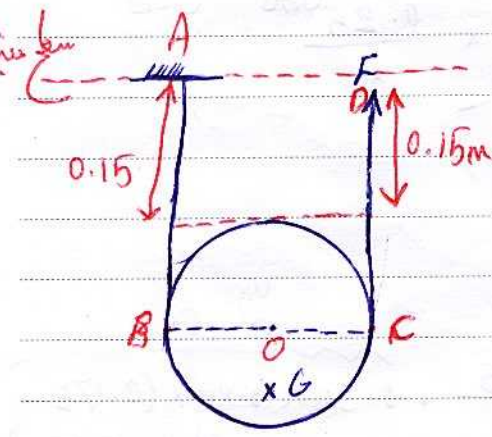 A
F
D
0.15
0.15m
B
O
C
x G